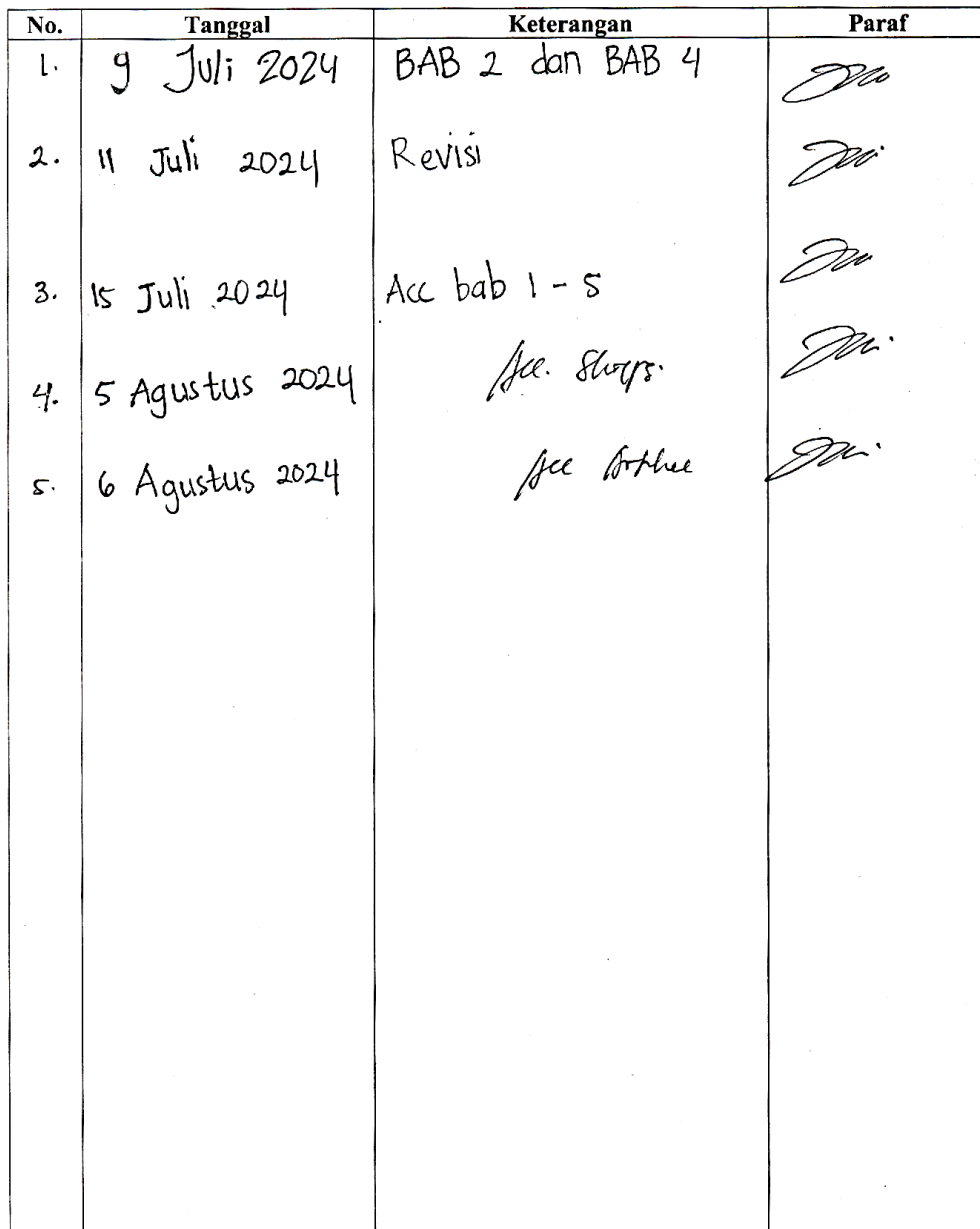 No. Tanggal Keterangan Paraf
1. 9 Juli 2024 BAB 2 dan BAB 4
2. 11 Juli 2024 Revisi
3. 15 Juli 2024 Acc bab 1 - 5
4. 5 Agustus 2024 Acc.
5. 6 Agustus 2024 Acc